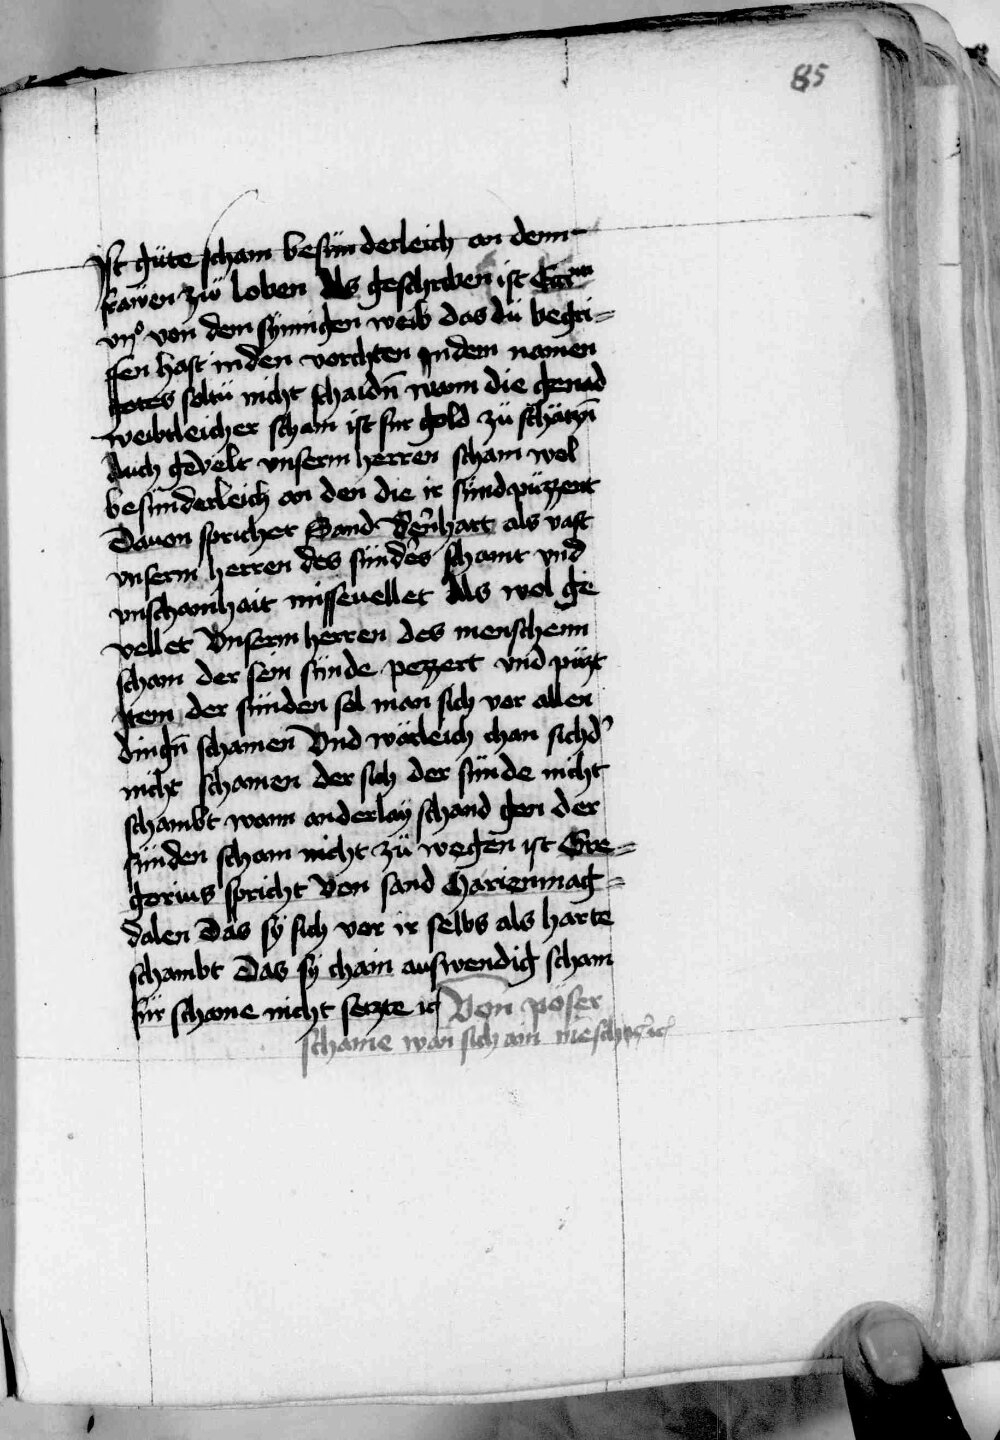 85
ist güte scham besünderleich an denn
frawen zü loben Als geschriben ist
vij° von dem synnigen weib das dü begri=
ffen hast in den vorchten Jn dem namen
gotes soltü nicht schaidn̄ wann die genad
weibtleicher scham ist für gold zü schätzn̄
Auch gevelt vnserm herren scham wol
besünderleich an den die ir sünd püzzent
Dauon sprichet Sand Bern̄hart als vast
vnserm herren des sünders schamt vnd
vnschamhait missevellet Als wol ge
vellet Vnserm herren des menschenn
scham der sein sünde pezzert vnd püzt
Jtem der sünden sol man sich vor allen
dingn̄ schamen Vnd wärleich chan sich d'
nicht schamen der sich der sünde nicht
schambt wann anderlay schand gen der
sünden scham nicht zü wegen ist Gre=
gorius spricht Von sand Marienmag=
dalen Das sÿ sich vor ir selbs als harte
schambt Das sÿ chain auswendig scham
für schame nicht setzte ꝛc Von pöser
schame wan sich ain mesch